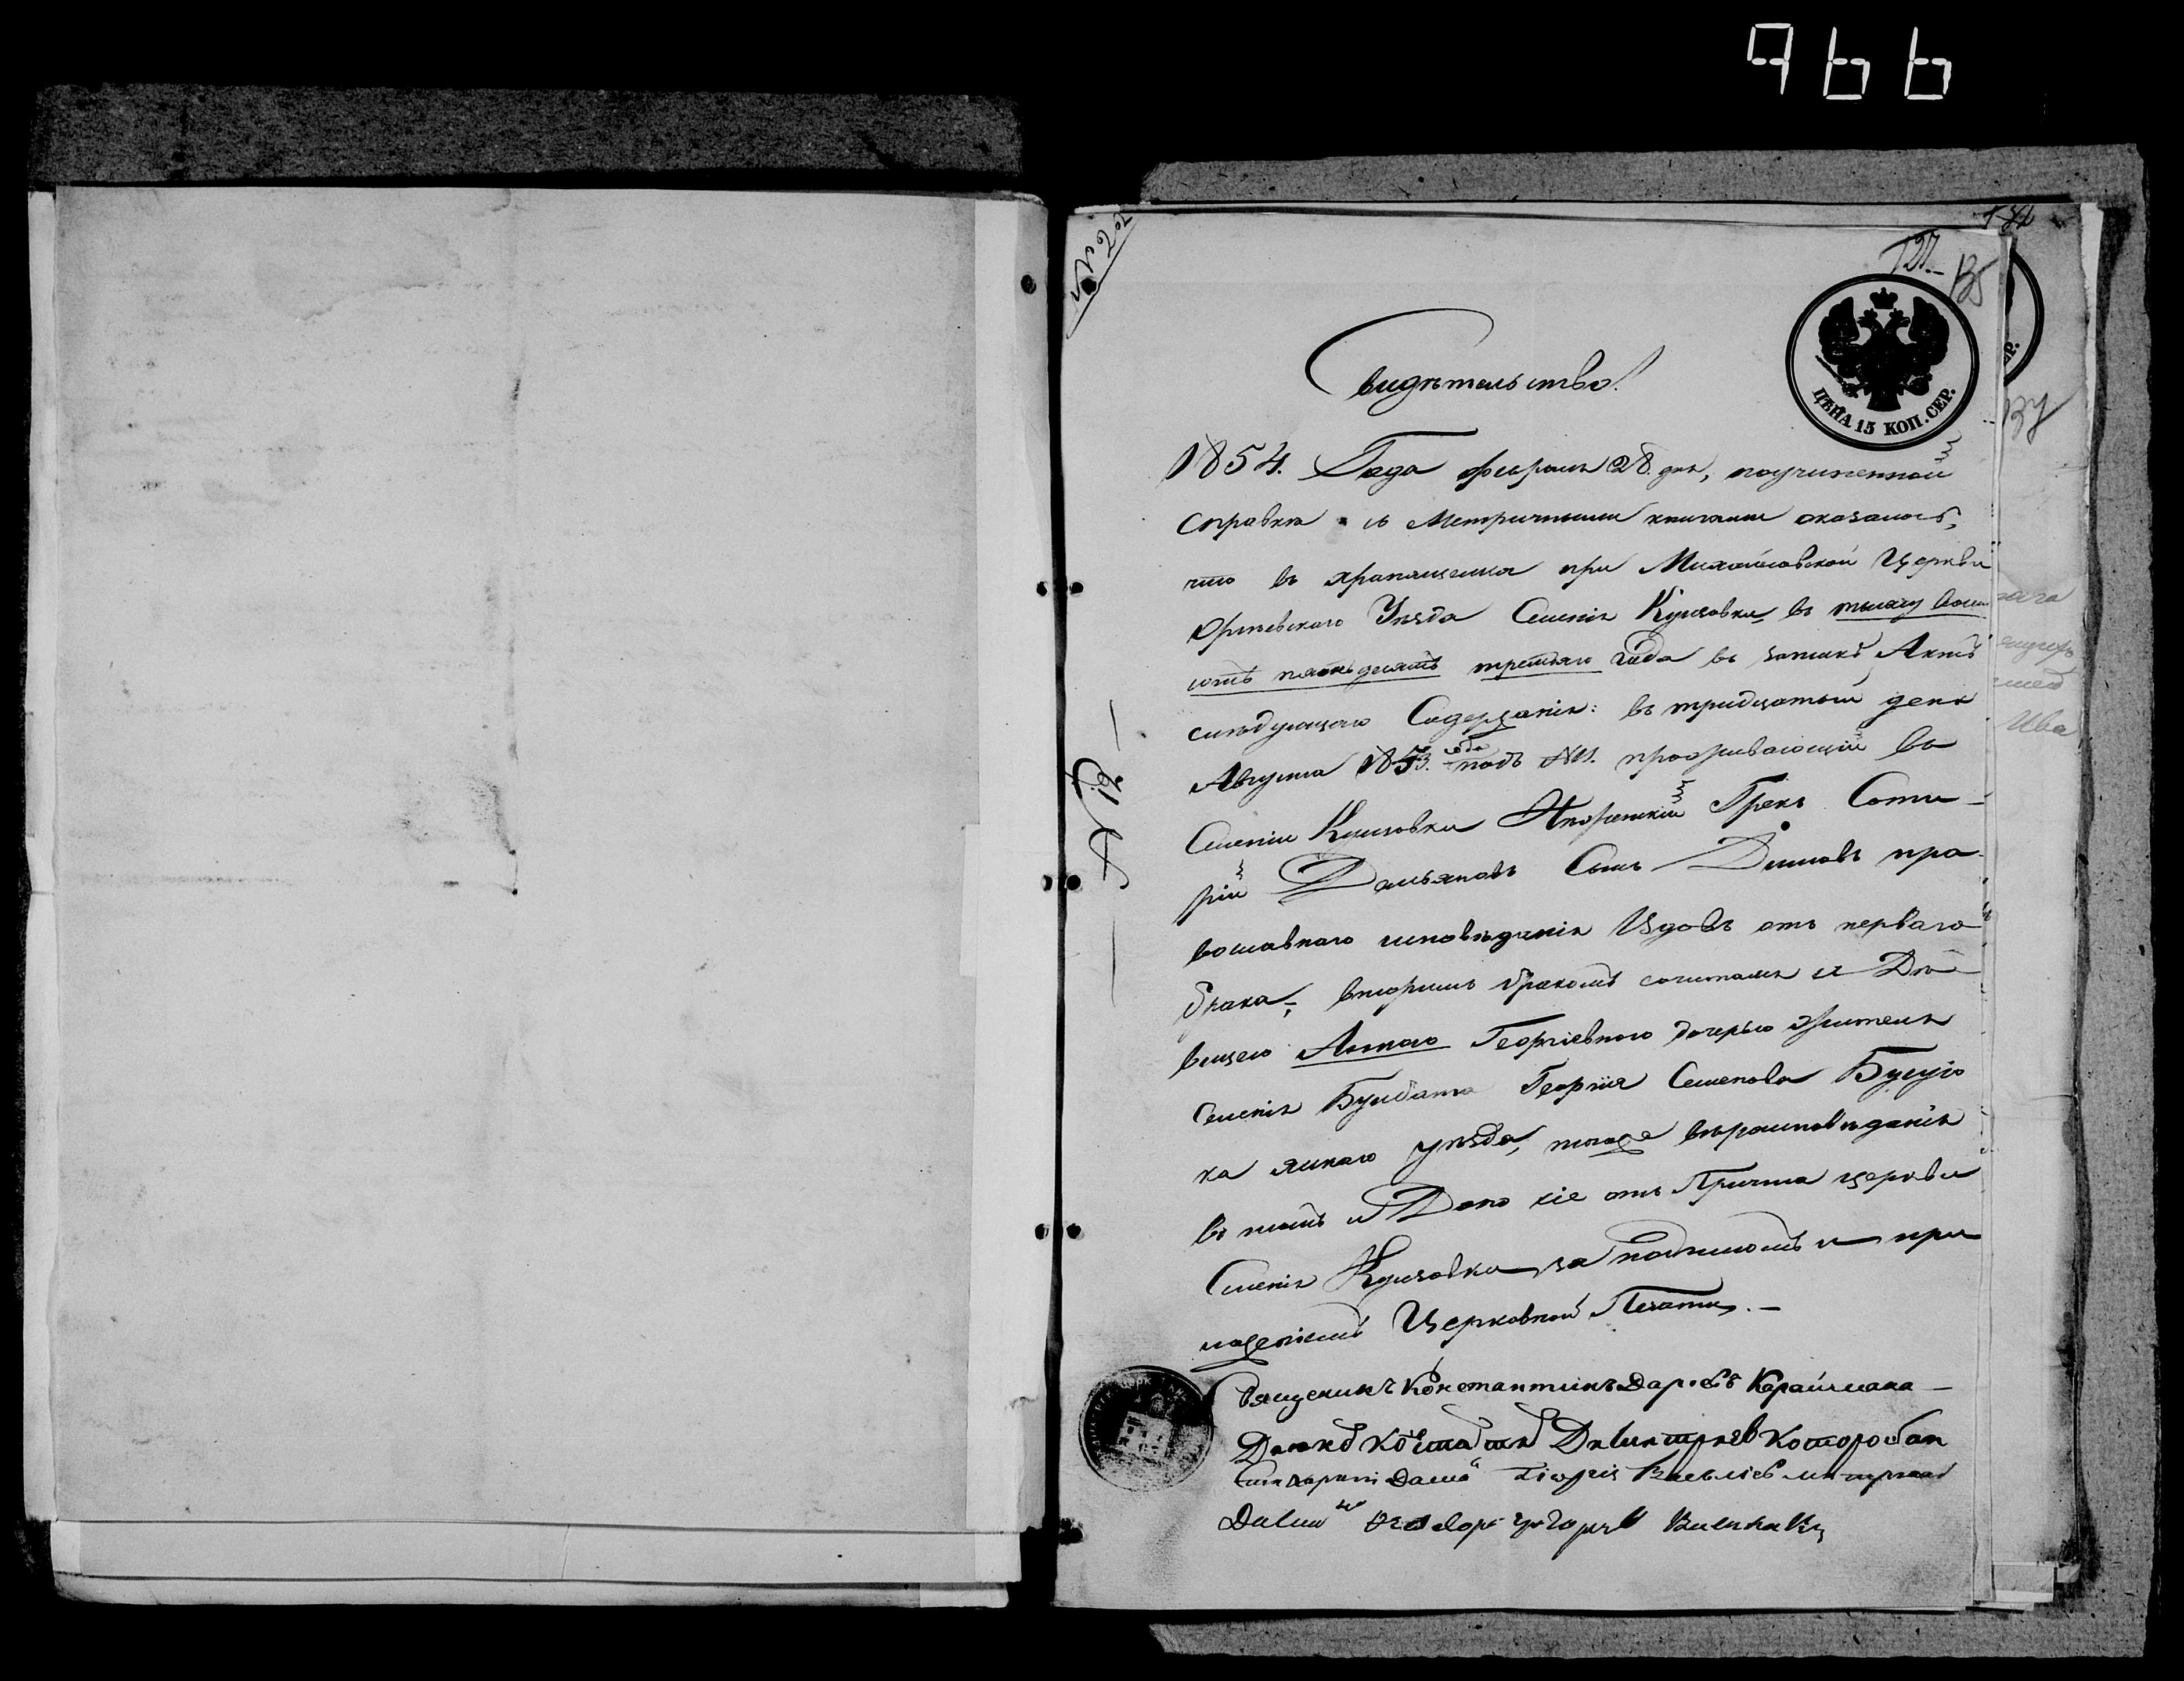 966
№ 202
127
135
132
ЦѢНА 15 КОП. СЕР.
Свидѣтельство.
1854. Года февраля 28. дня, по учиненной
справкѣ съ Метричными книгами оказалось,
что въ хранящейся при Михайловской Церкви
Оргѣевскаго Уѣзда Селенія Кризовки въ тысячу восем
сотъ пятьдесятъ третьяго года въ запискѣ Актъ
слѣдующаго Содержанія: въ тридцатый день
Августа 1853. года подъ № 1. проживающій въ
Селеніи Кризовки Грекъ Соти-
рій Дамьяновъ Сынъ Димовъ пра-
вославнаго исповѣданія Вдовъ отъ перваго
брака, вторымъ бракомъ сочитался съ Дѣ-
вицею Анною Георгіевною дочерью жителя
Селенія Бумбата Георгія Семенова
Яскаго уѣзда, тогоже вѣроисповѣданія
въ томъ и Дано сіе отъ Причта церкви
Селенія Кризовки за подписомъ и при
ложеніемъ Церковной Печати.
Священикъ Константинъ
Георгій Василіевъ